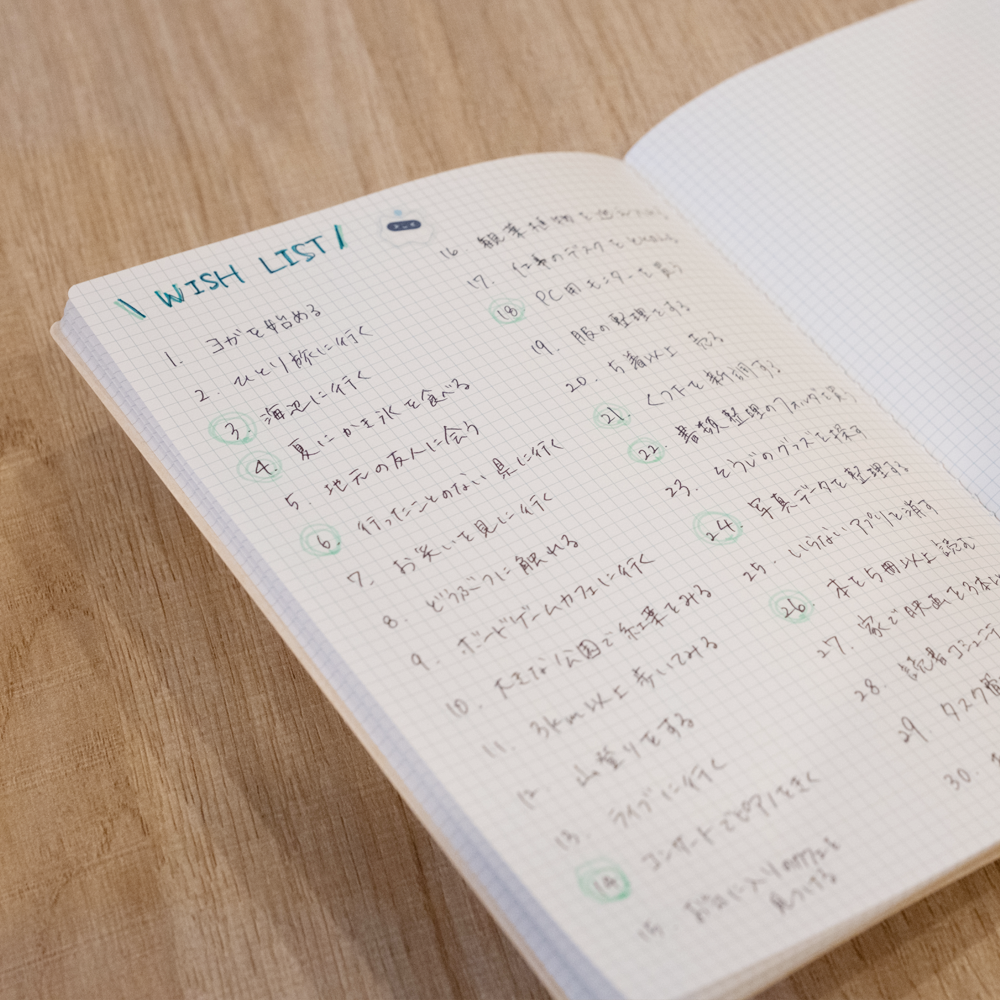 \ WISH LIST /
1. ヨガを始める
2. ひとり旅に行く
3. 海辺に行く
4. 夏にかき氷を食べる
5. 地元の友人に会う
6. 行ったことのない県に行く
7. お笑いを見に行く
8. どうぶつに触れる
9. ボードゲームカフェに行く
10. 大きな公園で紅葉をみる
11. 3km以上歩いてみる
12. 山登りをする
13. ライブに行く
14. コンサートでピアノをきく
15. お気に入りのカフェを
見つける
16. 観葉植物を
17. 仕事のデスクを
18. PC用モニターを買う
19. 服の整理をする
20. 5着以上 売る
21. くつ下を新調する
22. 書類整理のファイルを買う
23. そうじのグッズを探す
24. 写真データを整理する
25. いらないアプリを消す
26. 本を5冊以上読む
27. 家で映画を3本
28. 読者コミュニティ
29. タスク
30.